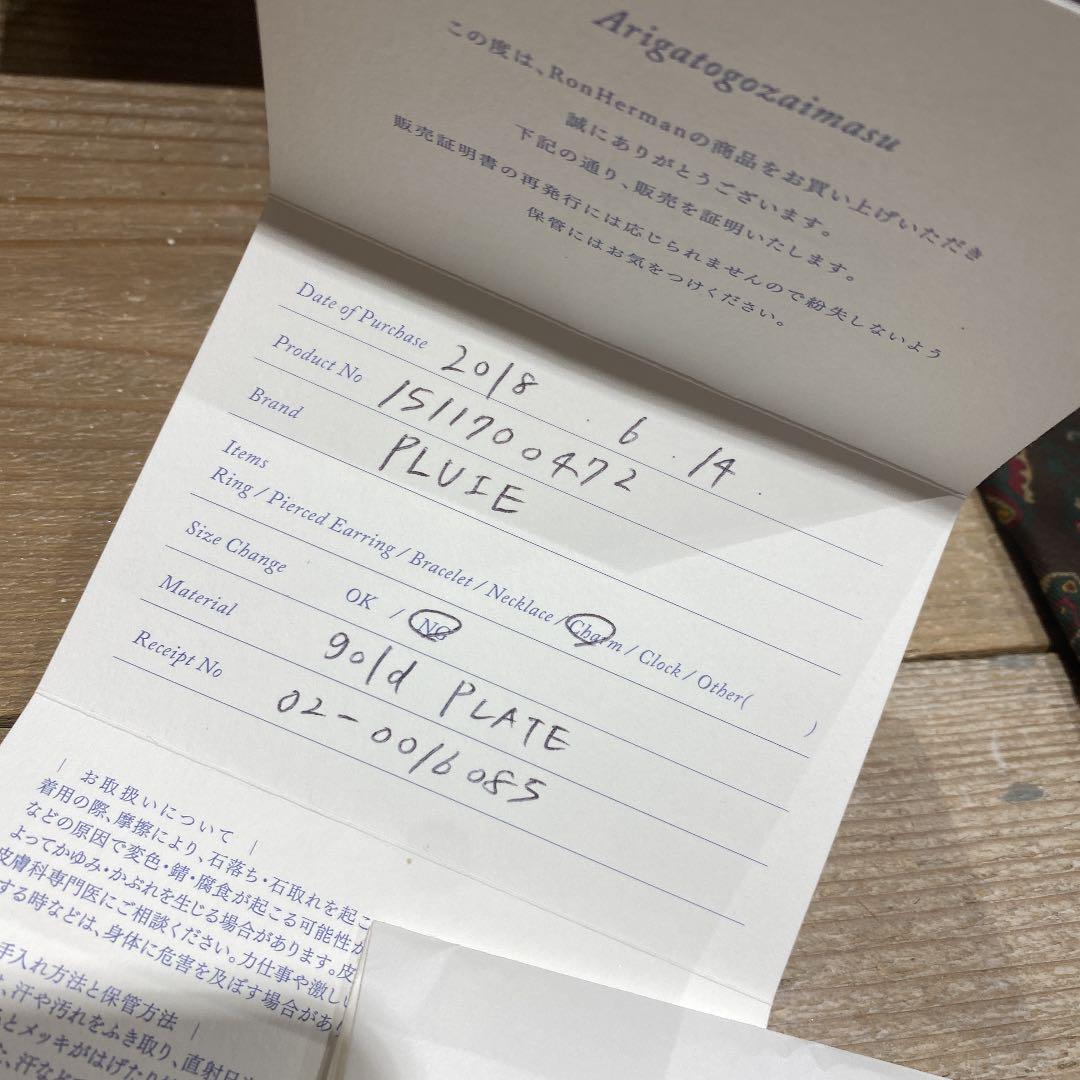 Arigatogozaimasu
この度は、RonHermanの商品をお買い上げいただき
誠にありがとうございます。
下記の通り、販売を証明いたします。
販売証明書の再発行には応じられませんので紛失しないよう
保管にはお気をつけください。
Date of Purchase 2018 . 6 . 14 .
Product No 151170 0472
Brand PLUIE
Items
Ring / Pierced Earring / Bracelet / Necklace / Charm / Clock / Other( )
Size Change OK / NG
Material gold PLATE
Receipt No 02-0016085
| お取扱いについて |
着用の際、摩擦により、石落ち・石取れを起こ
などの原因で変色・錆・腐食が起こる可能性が
よってかゆみ・かぶれを生じる場合があります。皮
皮膚科専門医にご相談ください。力仕事や激しい
する時などは、身体に危害を及ぼす場合があり
手入れ方法と保管方法 |
、汗や汚れをふき取り、直射日
とメッキがはげたり
、汗など